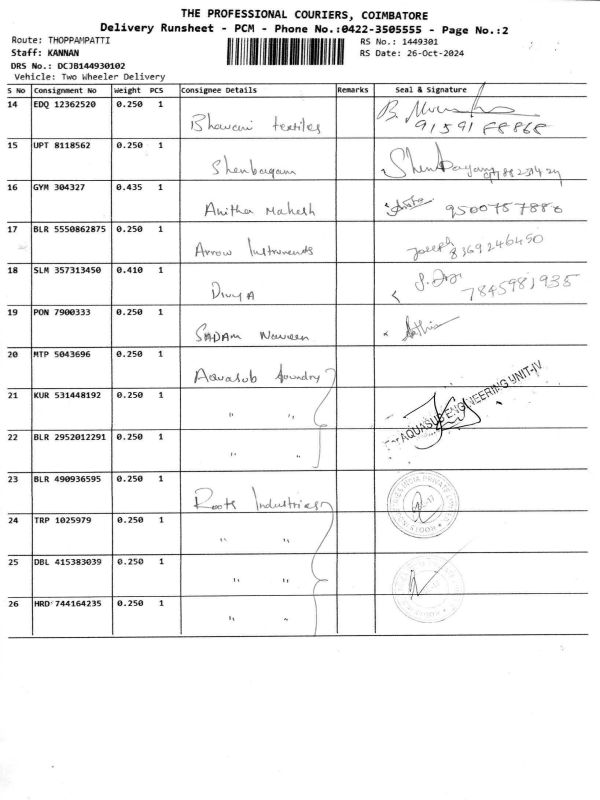 THE PROFESSIONAL COURIERS, COIMBATORE
Delivery Runsheet - PCM - Phone No.:0422-3505555 - Page No.:2
Route: THOPPAMPATTI
RS No.: 1449301
Staff: KANNAN
RS Date: 26-Oct-2024
DRS No.: DCJB144930102
Vehicle: Two Wheeler Delivery
S No Consignment No Weight PCS Consignee Details Remarks Seal & Signature
14 EDQ 12362520 0.250 1 Bhavani textiles B.
15 UPT 8118562 0.250 1 Shenbagam
16 GYM 304327 0.435 1 Anitha Mahesh 9500757880
17 BLR 5550862875 0.250 1 Arrow Instruments Joseph
8369246450
18 SLM 357313450 0.410 1 Divya
7845981935
19 PON 7900333 0.250 1 SADAM Naveen
20 MTP 5043696 0.250 1 Aquasub foundry
21 KUR 531448192 0.250 1 " " For AQUASUB ENGINEERING UNIT-IV
22 BLR 2952012291 0.250 1 " "
23 BLR 490936595 0.250 1 Roots Industries
24 TRP 1025979 0.250 1 " "
25 DBL 415383039 0.250 1 " "
26 HRD 744164235 0.250 1 " "